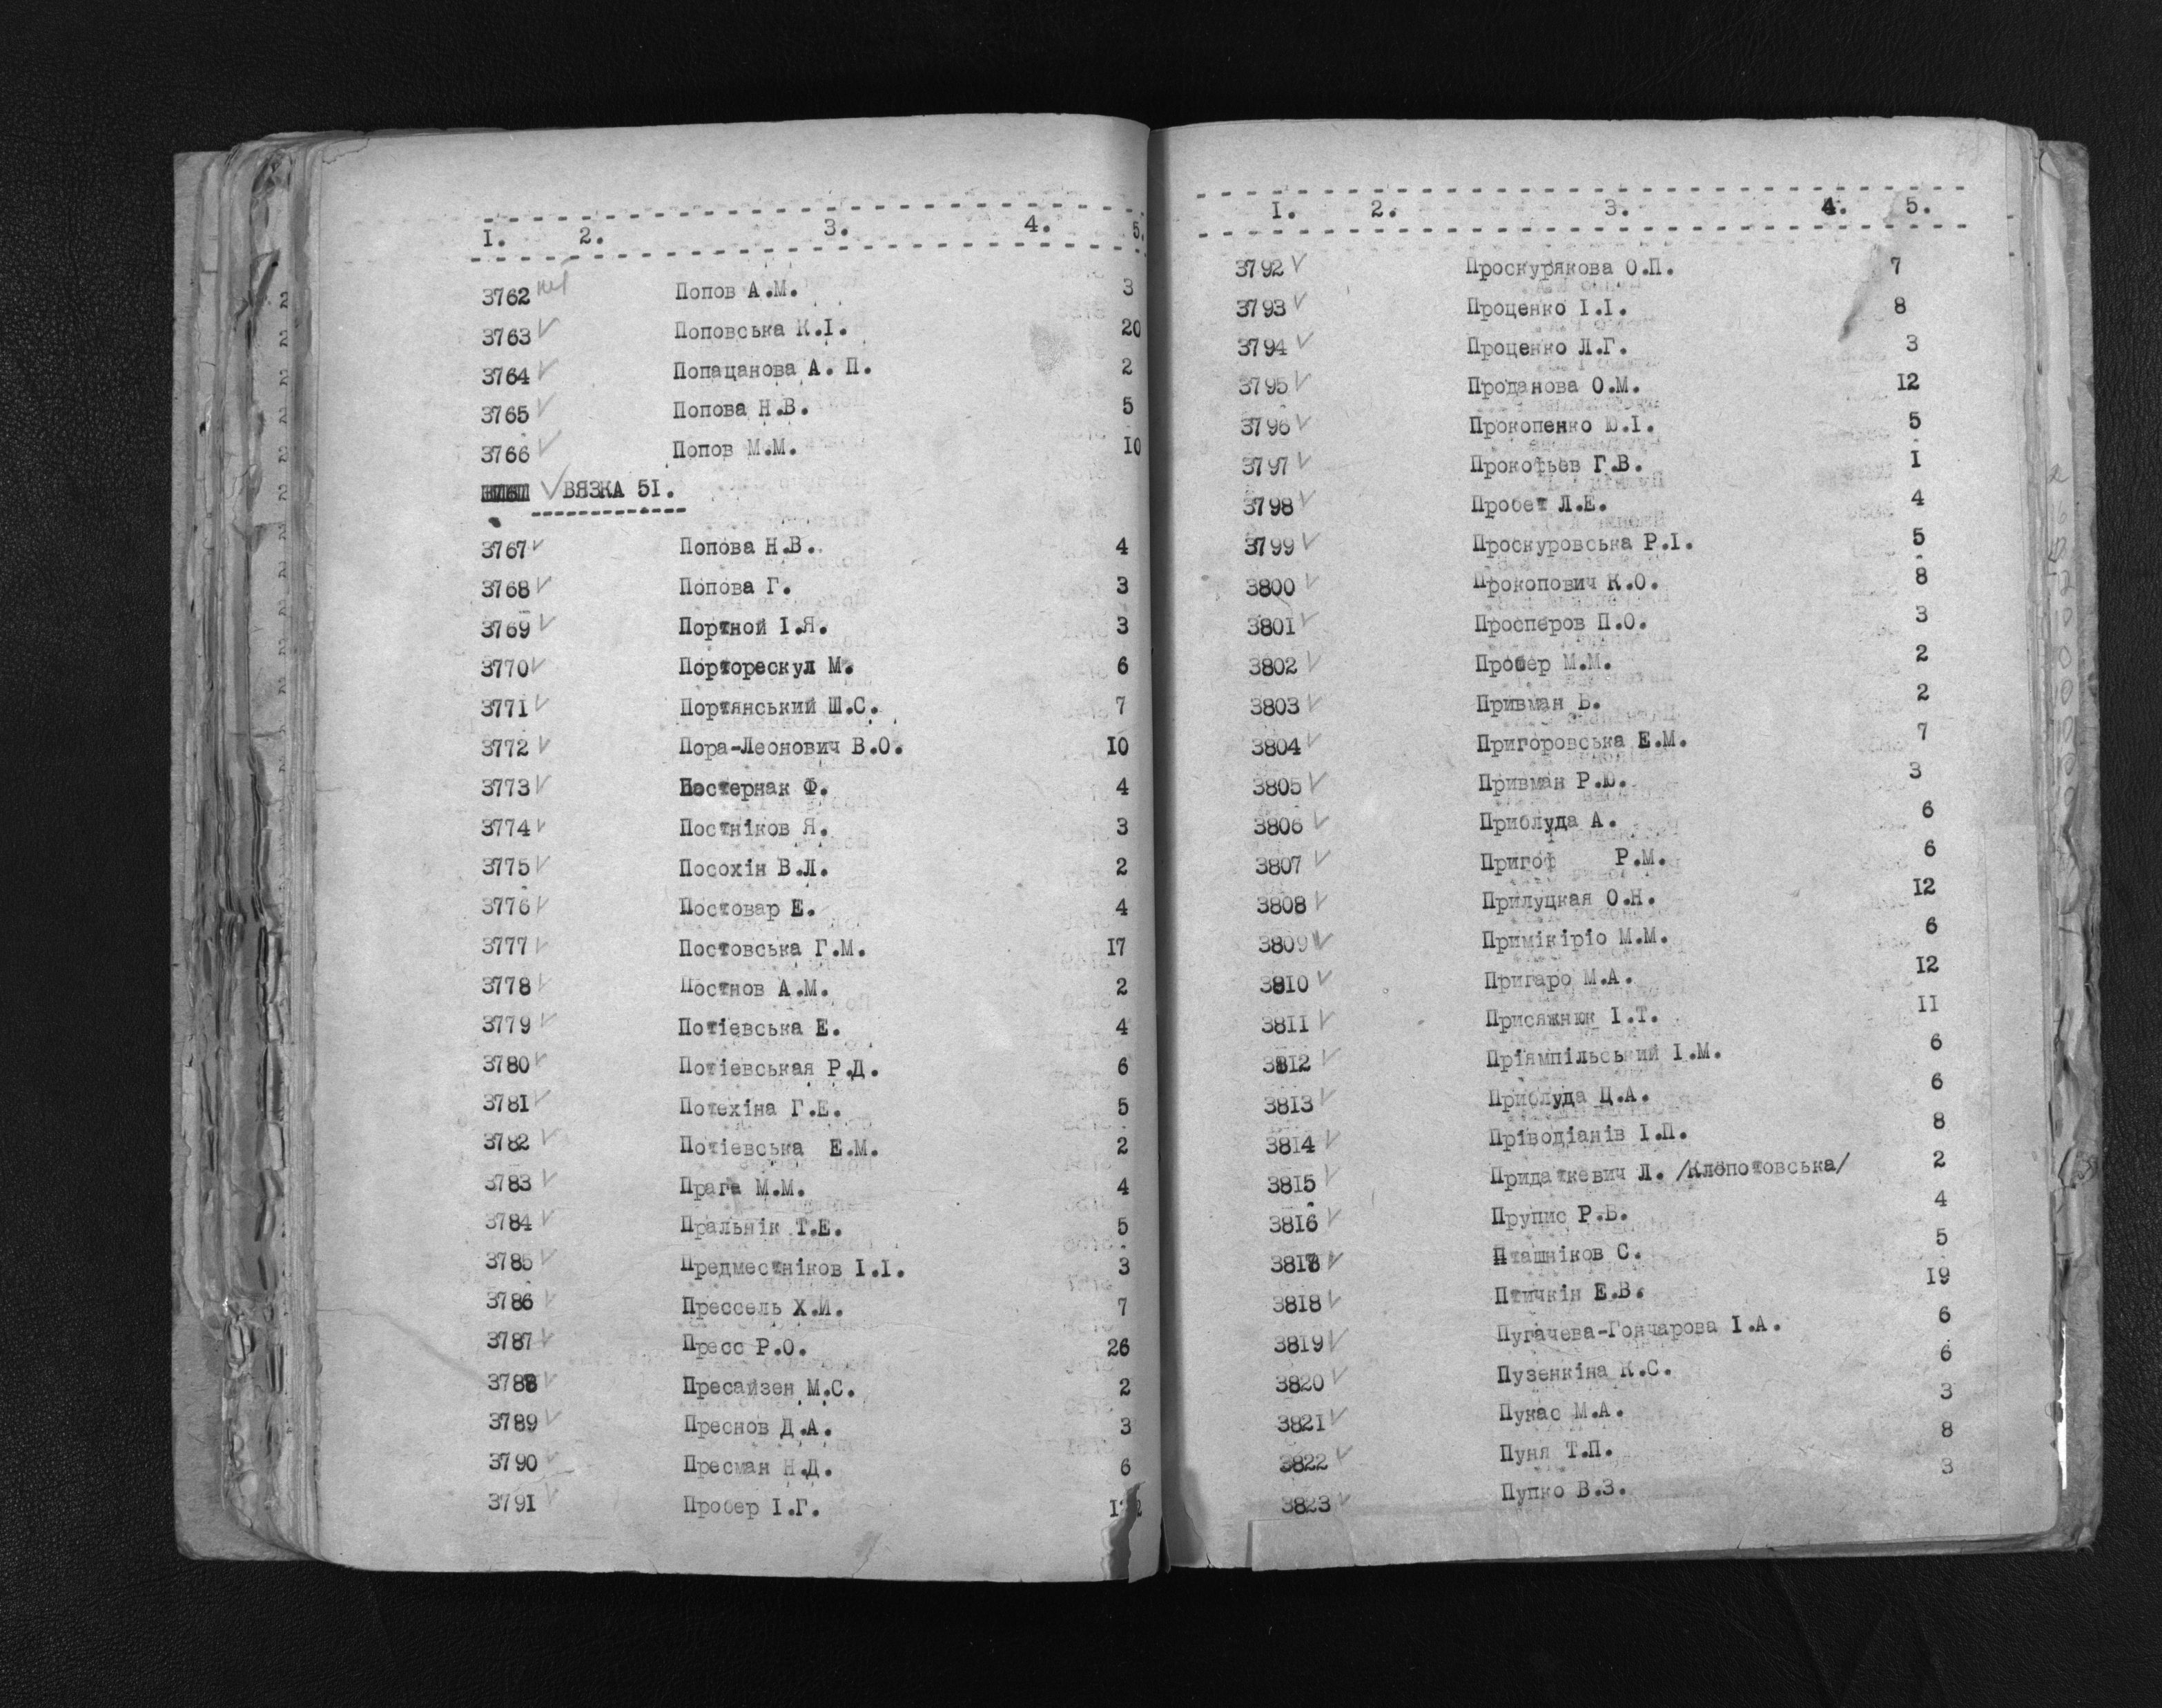 I. 2. 3. 4. 5.
3762 Попов А.М. 3
3763 Поповська К.І. 20
3764 Попацанова А. П. 2
3765 Попова Н.В. 5
3766 Попов М.М. 10
ВЯЗКА 51.
3767 Попова Н.В. 4
3768 Попова Г. 3
3769 Портной І.Я. 3
3770 Порторескул М. 6
3771 Портянський Ш.С. 7
3772 Пора-Леонович В.О. 10
3773 Постернак Ф. 4
3774 Постніков Я. 3
3775 Посохін В.Л. 2
3776 Постовар Е. 4
3777 Постовська Г.М. 17
3778 Постнов А.М. 2
3779 Потієвська Е. 4
3780 Потієвськая Р.Д. 6
3781 Потехіна Г.Е. 5
3782 Потієвська Е.М. 2
3783 Прага М.М. 4
3784 Пральнік Т.Е. 5
3785 Предместніков І.І. 3
3786 Прессель Х.И. 7
3787 Пресс Р.О. 26
3788 Пресайзен М.С. 2
3789 Преснов Д.А. 3
3790 Пресман Н.Д. 6
3791 Пробер І.Г.
I. 2. 3. 4. 5.
3792 Проскурякова О.П. 7
3793 Проценко І.І. 8
3794 Проценко Л.Г. 3
3795 Проданова О.М. 12
3796 Прокопенко Ю.І. 5
3797 Прокофьев Г.В. I
3798 Пробет Л.Е. 4
3799 Проскуровська Р.І. 5
3800 Прокопович К.О. 8
3801 Просперов П.О. 3
3802 Пробер М.М. 2
3803 Привман Б. 2
3804 Пригоровська Е.М. 7
3805 Привман Р.Ю. 3
3806 Приблуда А. 6
3807 Пригоф Р.М. 6
3808 Прилуцкая О.Н. 12
3809 Примікіріо М.М. 6
3810 Пригаро М.А. 12
3811 Присяжнюк І.Т. 11
3812 Пріямпільський І.М. 6
3813 Приблуда Ц.А. 6
3814 Пріводіанів І.П. 8
3815 Придаткевич Л. /Клопотовська/ 2
3816 Прупис Р.Б. 4
3817 Пташніков С. 5
3818 Птичкін Е.В. 19
3819 Пугачева-Гончарова І.А. 6
3820 Пузенкіна К.С. 6
3821 Пукас М.А. 3
3822 Пуня Т.П. 8
3823 Пупко В.З. 3